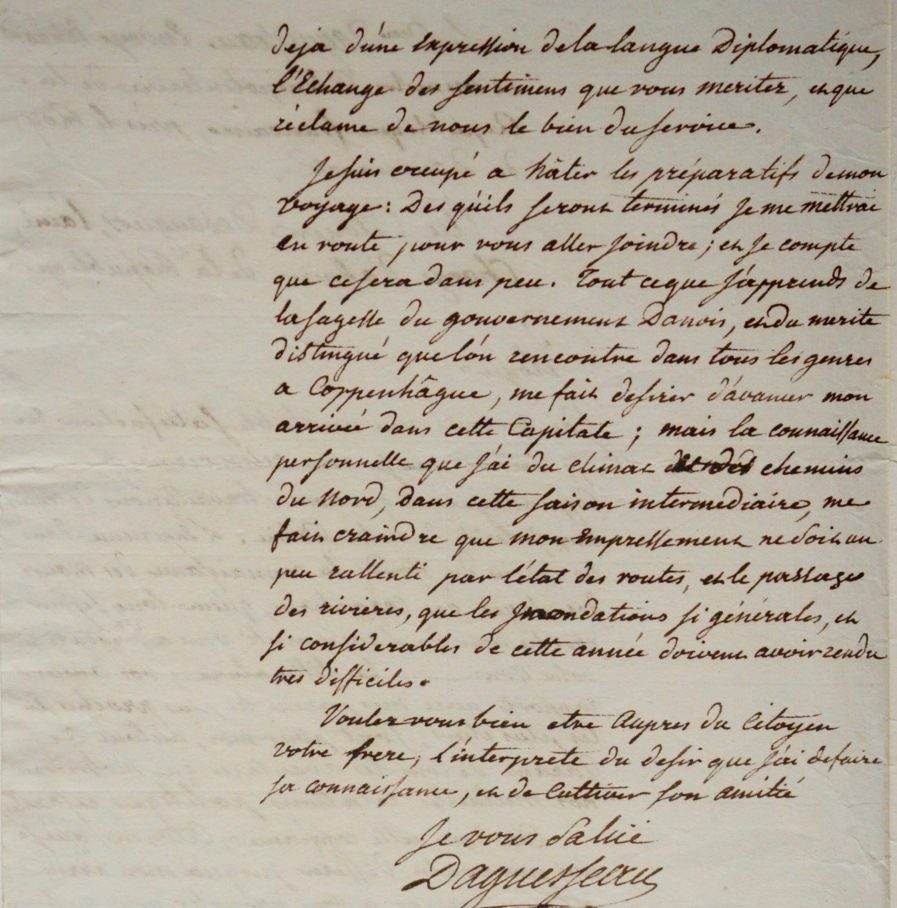 deja d'une expression de la langue Diplomatique,
l'Echange des sentimens que vous meritez, et que
réclame de nous le bien du service.
Je suis occupé a hâter les préparatifs de mon
voyage: Des qu'ils seront terminés je me mettrai
en route pour vous aller joindre; et je compte
que ce sera dans peu. Tout ce que j'apprends de
la sagesse du gouvernement Danois, et du merite
distingué que l'on rencontre dans tous les genres
a Coppenhâgue, me fait desirer d'avancer mon
arrivée dans cette Capitale; mais la connaissance
personnelle que j'ai du climat et des chemins
du Nord, dans cette saison intermediaire, me
fait craindre que mon empressement ne soit un
peu rallenti par l'état des routes, et le passage
des rivières, que les Inondations si générales, et
si considerables de cette année doivent avoir rendu
tres difficiles.
Voulez vous bien etre Aupres du Citoyen
votre frere, l'interprete du desir que j'ai de faire
sa connaissance, et de Cultiver son amitié
Je vous salue
Daguesseau